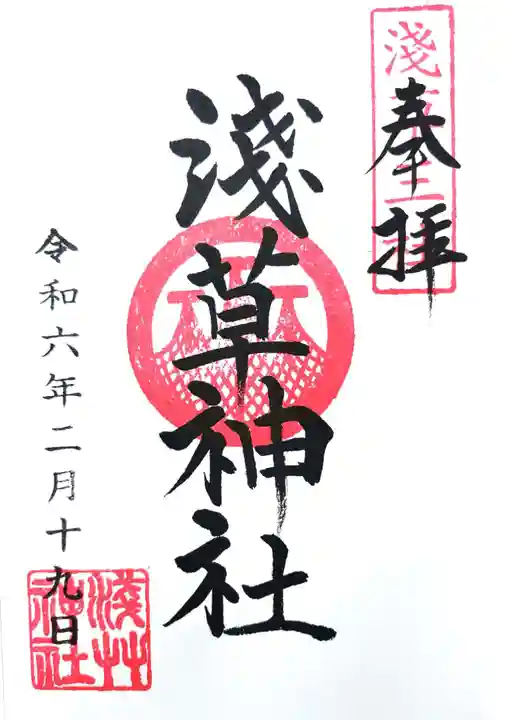 奉拝
淺草神社
令和六年二月十九日
淺草神社